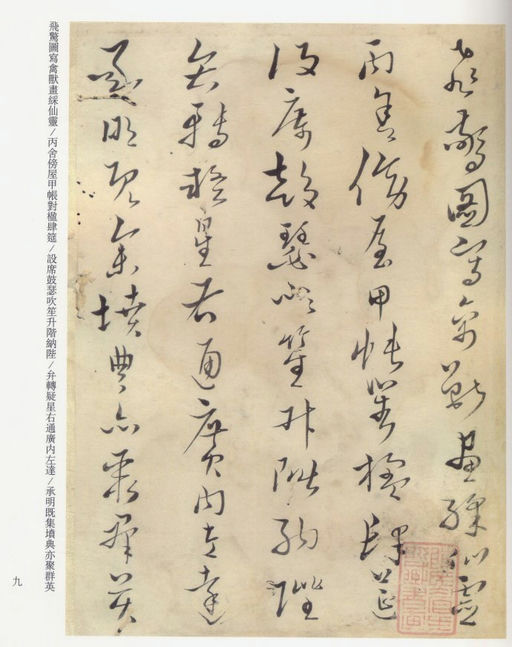 飛驚圖寫禽獸畫綵仙靈
丙舍傍屋甲帳對楹肆筵
設席鼓瑟吹笙升階納陛
弁轉疑星右通廣內左達
承明既集墳典亦聚群英
飛驚圖寫禽獸畫綵仙靈／丙舍傍屋甲帳對楹肆筵／設席鼓瑟吹笙升階納陛／弁轉疑星右通廣内左達／承明既集墳典亦聚群英
九